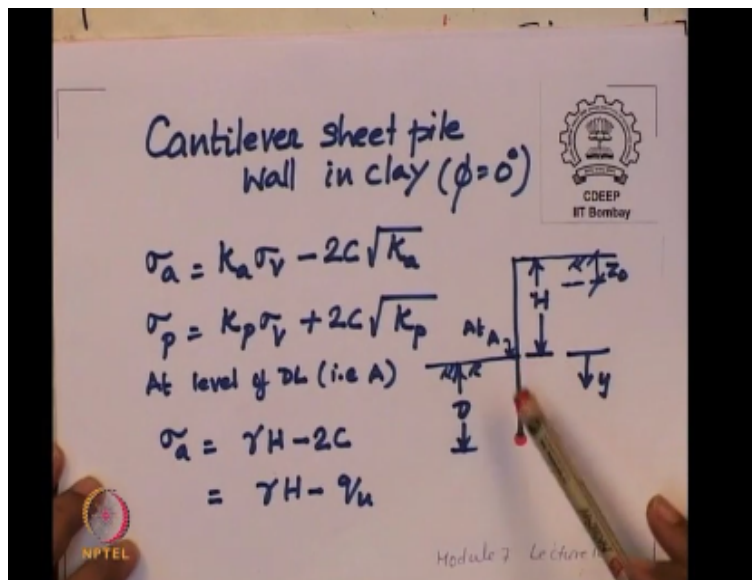 Cantilever sheet pile
wall in clay (φ=0°)
CDEEP
IIT Bombay
σₐ = kₐσᵥ - 2C√kₐ
σₚ = kₚσᵥ + 2C√kₚ
At level of DL (i.e A)
σₐ = γH - 2C
= γH - qᵤ
H
Z₀
At A
D
y
NPTEL
Module 7 Lecture